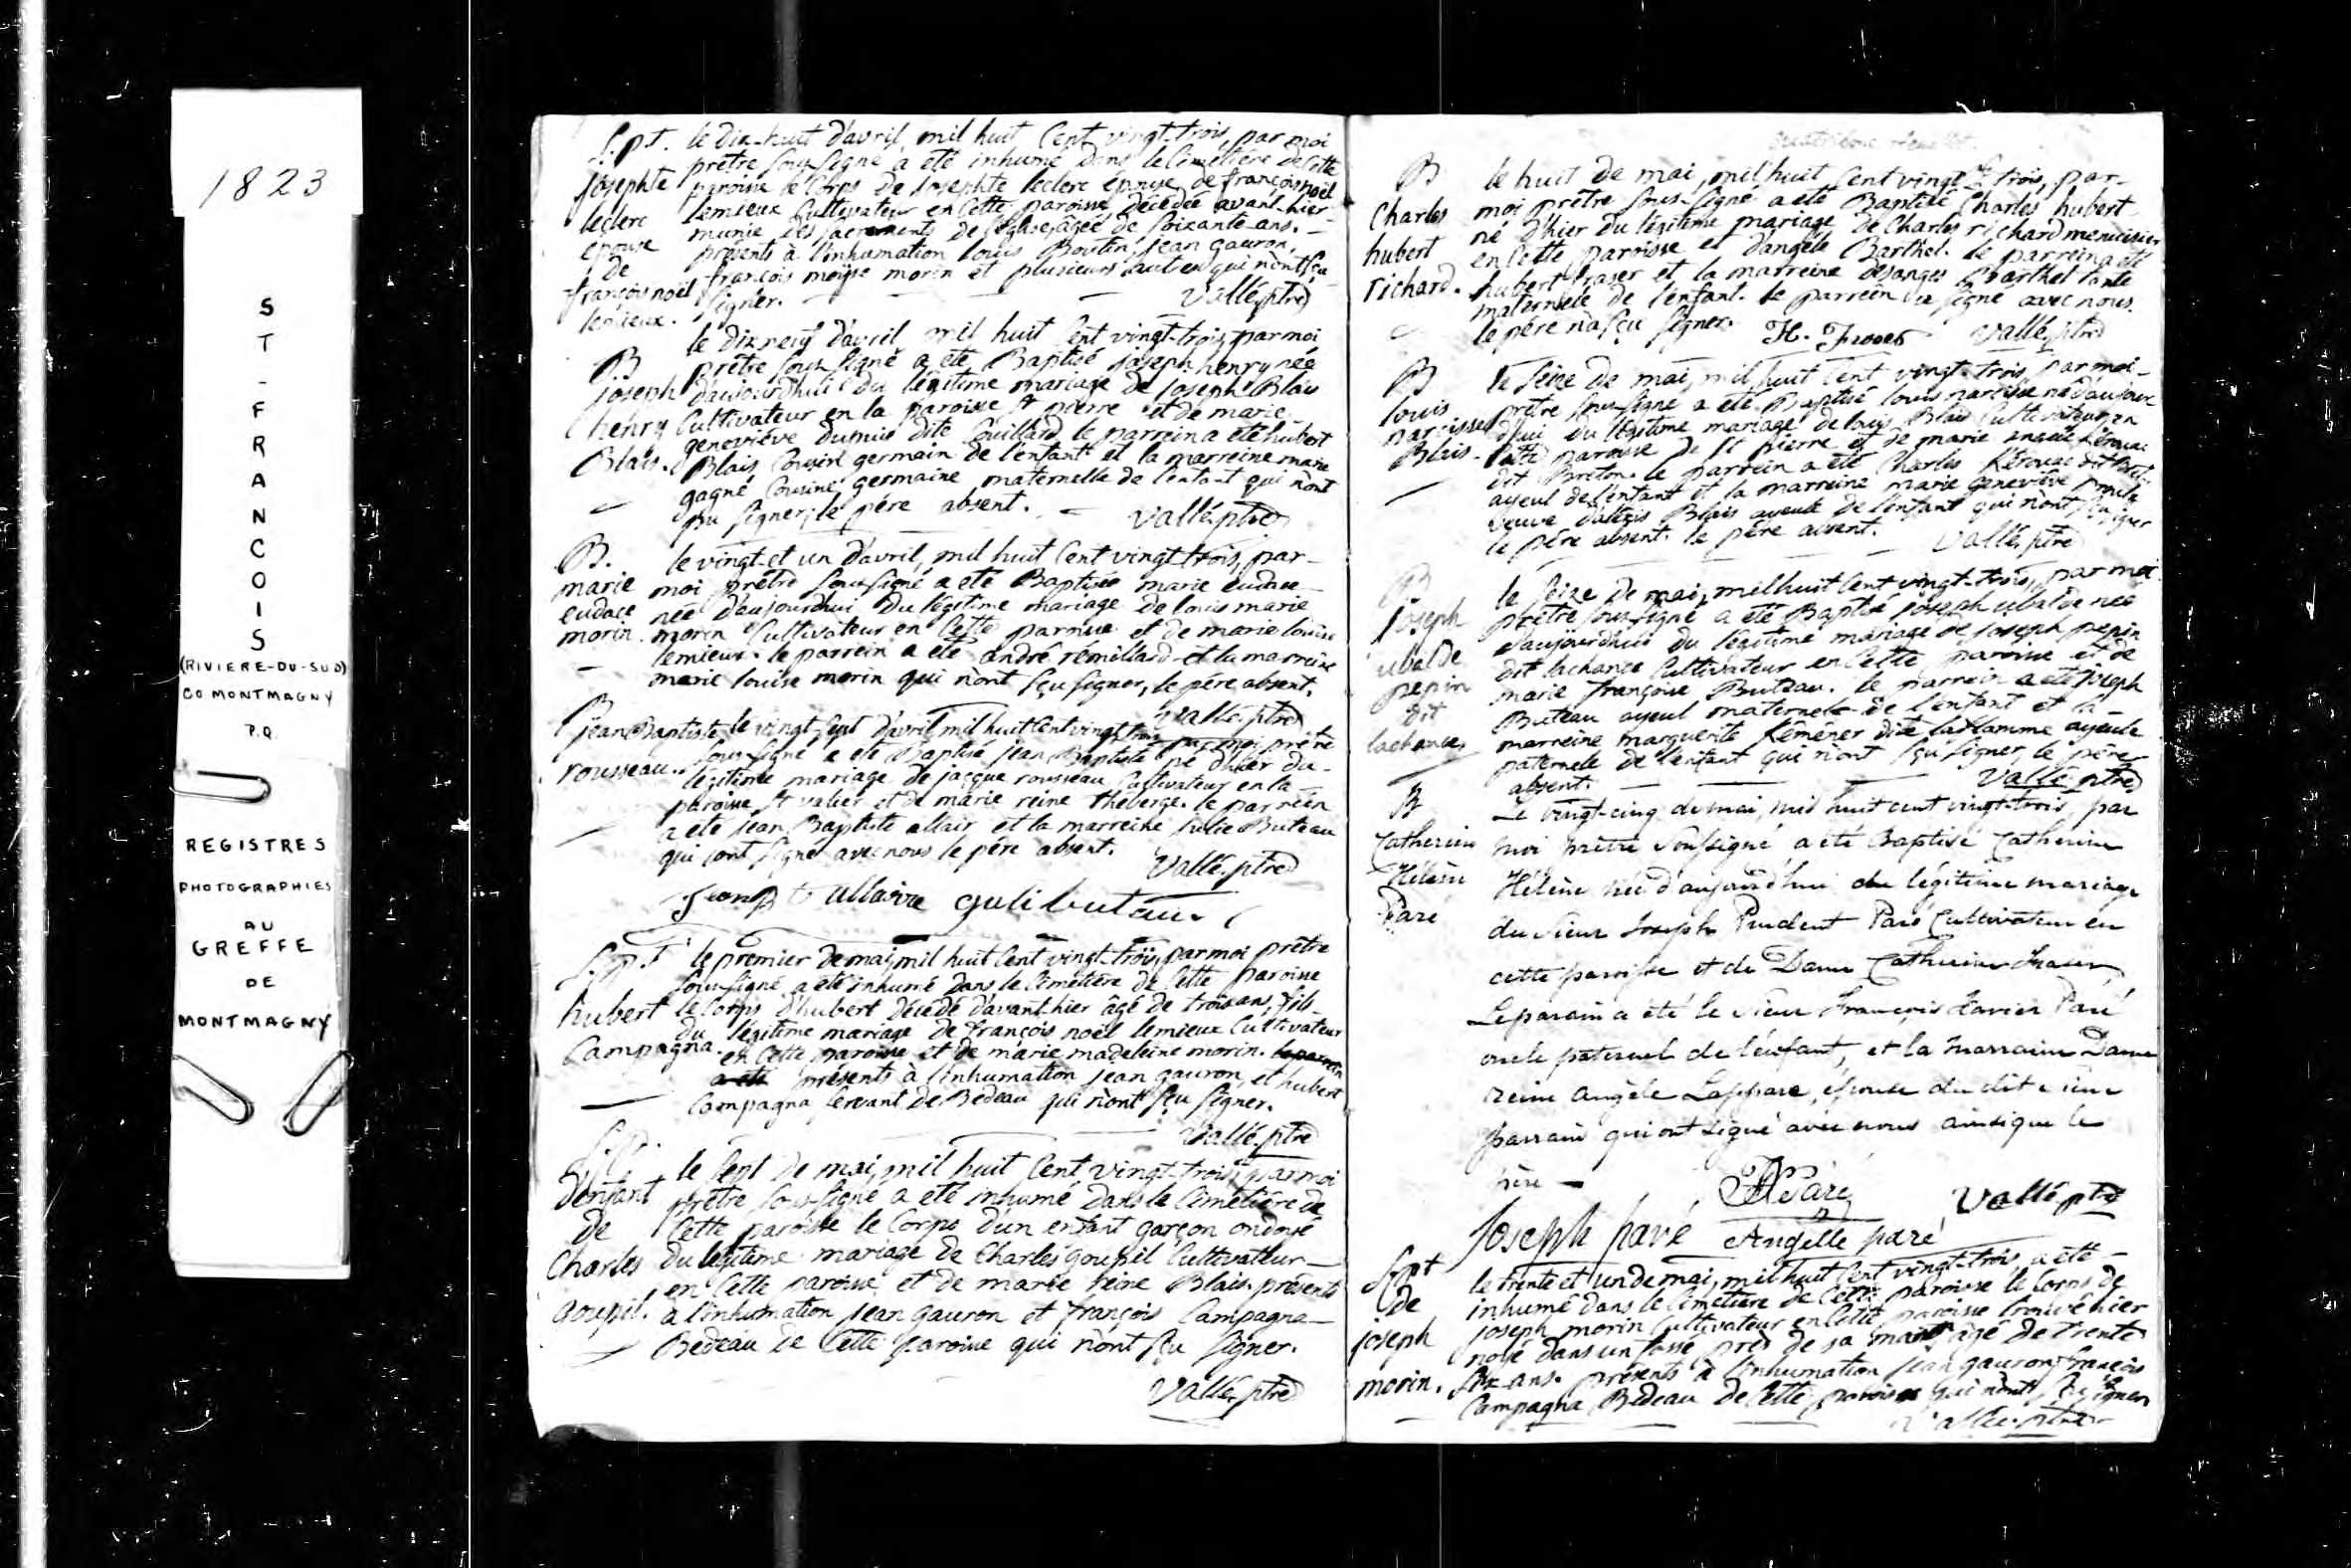 1823
S
T
-
F
R
A
N
C
O
I
S
(RIVIERE-DU-SUD)
CO MONTMAGNY
P.Q.
REGISTRES
PHOTOGRAPHIES
AU
GREFFE
DE
MONTMAGNY
S.pt.
josephte
leclerc
épouse
de
françois noël
lemieux.
le dix-huit d'avril, mil huit Cent vingt-trois, par moi
prêtre Sous-Signé a été inhumé dans le Cimetière de Cette
paroisse le Corps de josephte leclerc épouse de françois noël
lemieux Cultivateur en Cette paroisse décédée avant-hier
munie des Sacrements de l'église, âgée de Soixante ans. -
présents à l'inhumation louis Boutin, jean gauron,
françois moÿse morin et plusieurs autres qui n'ont Sçu
Signer. Vallé ptre
B
joseph
henry
Blais.
le dix neuf d'avril mil huit Cent vingt-trois, par moi
prêtre Sous Signé a été Baptisé joseph henry née
d'aujourdhui du légitime mariage de joseph Blais
Cultivateur en la paroisse St pierre et de marie
geneviève dumas dite Couillard le parrein a été hubert
Blais Cousin germain de l'enfant et la marreine marie
gagné Cousine germaine maternelle de l'enfant qui n'ont
pu Signer, le père absent. - Vallé ptre
B.
marie
eudace
morin.
le vingt-et un d'avril, mil huit Cent vingt trois, par-
moi prêtre Sous-signé a été Baptisée marie eudace
née d'aujourdhui du légitime mariage de louis marie
morin Cultivateur en Cette paroisse et de marie louise
lemieux. le parrein a été andré rémillard et la marreine
marie louise morin qui n'ont Sçu Signer, le père absent.
Vallé ptre
B
jean Baptiste
rousseau.
le vingt Sept d'avril mil huit Cent vingt trois par moi prêtre
Sous-Signé a été Baptisé jean Baptiste né d'hier du-
légitime mariage de jacque rousseau Cultivateur en la
paroisse St valier et de marie reine théberge. le parrein
a été jean Baptiste allair et la marreine julie Buteau
qui ont Signé avec nous le père absent.
Vallé ptre
Jean Bt allaire guli buteau
S.pt
hubert
Campagna.
le premier de mai, mil huit Cent vingt-trois, par moi prêtre
Sous-Signé a été inhumé dans le Cimetière de Cette paroisse
le Corps d'hubert décédé d'avant-hier âgé de trois ans, fils-
du légitime mariage de françois noël lemieux Cultivateur
en Cette paroisse et de marie madeleine morin. le parrein
a été présents à l'inhumation jean gauron, et hubert
Campagna Servant de Bedeau qui n'ont Sçu Signer.
Vallé ptre
d'enfant
de
Charles
goupil.
le Sept de mai, mil huit Cent vingt-trois, par moi
prêtre Sous-Signé a été inhumé dans le Cimetière de
Cette paroisse le Corps d'un enfant garçon ondoyé
du légitime mariage de Charles goupil Cultivateur-
en Cette paroisse et de marie reine Blais. présents
à l'inhumation jean gauron et françois Campagna-
Bedeau de Cette paroisse qui n'ont Sçu Signer.
Vallé ptre
B
Charles
hubert
richard.
le huit de mai, mil huit Cent vingt trois, par-
moi prêtre Sous-Signé a été Baptisé Charles hubert
né d'hier du légitime mariage de Charles richard menuisier
en Cette paroisse et d'angèle Barthel. le parrein a été
hubert fraser et la marreine desanges Barthel tante
maternele de l'enfant. le parrein a Signé avec nous.
le père n'a Sçu Signer. H. Fraser Vallé ptre
B
louis
narcisse
Blais.
le Seize de mai, mil huit Cent vingt-trois, par moi-
prêtre Sous-Signé a été Baptisé louis narcisse né d'aujour
d'hui du légitime mariage de louis Blais Cultivateur en
Cette paroisse de St pierre et de marie Kérouac
dit Breton. le parrein a été Charles Kérouac dit Breton
ayeul de l'enfant et la marreine marie geneviève proulx
veuve d'alexis Blais ayeule de l'enfant qui n'ont Sçu Signer
le père absent. le père absent. Vallé ptre
B
joseph
ubalde
pepin
dit
lachance
le Seize de mai, mil huit Cent vingt-trois, par moi
prêtre Sous-Signé a été Baptisé joseph ubalde née
d'aujourdhui du légitime mariage de joseph pepin
dit lachance Cultivateur en Cette paroisse et de
marie françoise Buteau. le parrein a été joseph
Buteau ayeul maternele de l'enfant et la-
marreine marguerite Keméner dite laflamme ayeule
paternele de l'enfant qui n'ont Sçu Signer, le père
absent. Vallé ptre
B
Catherine
Hélène
Paré
Le vingt-cinq de mai, mil huit cent vingt-trois, par
moi prêtre Soussigné a été Baptisé Catherine
Hélène née d'aujourd'hui du légitime mariage
du Sieur Joseph Prudent Paré Cultivateur en
cette paroisse et de Dame Catherine Fraser
Le parain a été le Sieur François Xavier Paré
oncle paternel de l'enfant, et la marraine Dame
reine angèle Lappare, épouse du dit Sieur
parrain qui ont Signé avec nous ainsi que le
père -
Paré Vallé ptre
Joseph paré Angelle paré
Spt
de
joseph
morin.
le trente et un de mai, mil huit Cent vingt-trois a été-
inhumé dans le Cimetière de Cette paroisse le Corps de
joseph morin Cultivateur en Cette paroisse trouvé hier
noyé dans un fossé près de sa âgé de trente
Six ans. présents à l'inhumation jean gauron, françois
Campagna Bedeau de Cette paroisse qui n'ont Sçu Signer
Vallé ptre